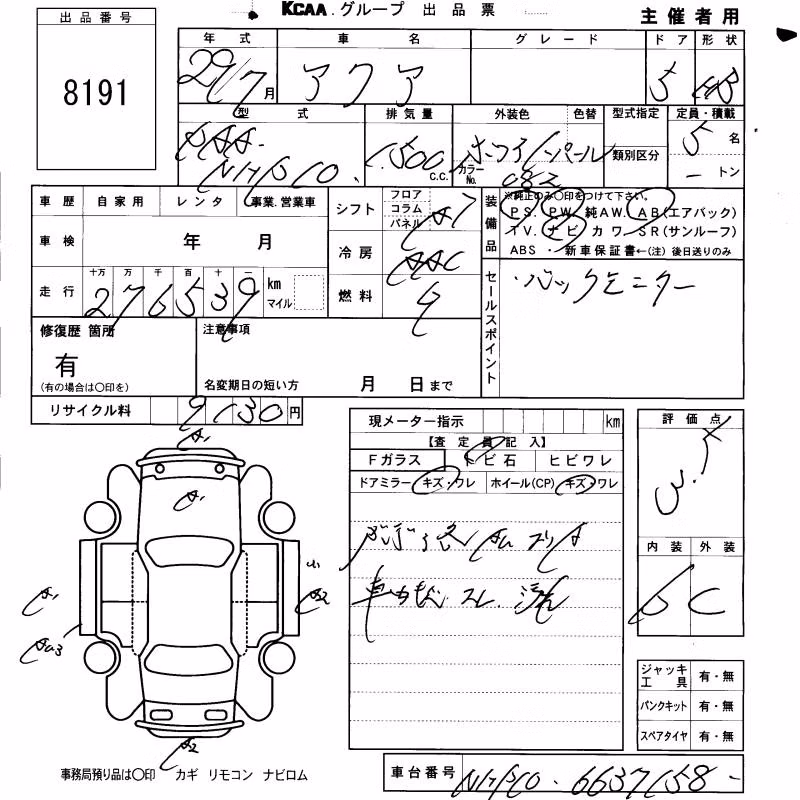 KCAA.グループ 出品票
主催者用
出品番号
8191
年式 車名 グレード ドア 形状
29/7月 アクア 5 HB
型式 排気量 外装色 色替 型式指定 定員・積載
DAA-NHP10 1,500 C.C. カラーNo. 082 類別区分 5名
ートン
車歴 自家用 レンタ 事業.営業車
車検 年 月
走行 十万 万 千 百 十 一
276539 km マイル
シフト フロア コラム パネル AT
冷房 AAC
燃料
装備品 ※純正のみ〇印をつけて下さい。
PS. PW. 純AW. AB(エアバッグ)
TV. ナビ カワ SR(サンルーフ)
ABS ・ 新車保証書←(注) 後日送りのみ
セールスポイント ・バックモニター
修復歴 箇所
有
(有の場合は〇印を)
注意事項
名変期日の短い方 月 日まで
リサイクル料 9130円
現メーター指示 km
【査定員記入】
Fガラス トビ石 ヒビワレ
ドアミラー キズ・ワレ ホイール(CP) キズ・ワレ
スレ
評価点
3.5
内装 外装
C
A1
A1
A1
A2
AU3
A2
ジャッキ工具 有・無
パンクキット 有・無
スペアタイヤ 有・無
事務局預り品は〇印 カギ リモコン ナビロム
車台番号 NHP10-6637158-